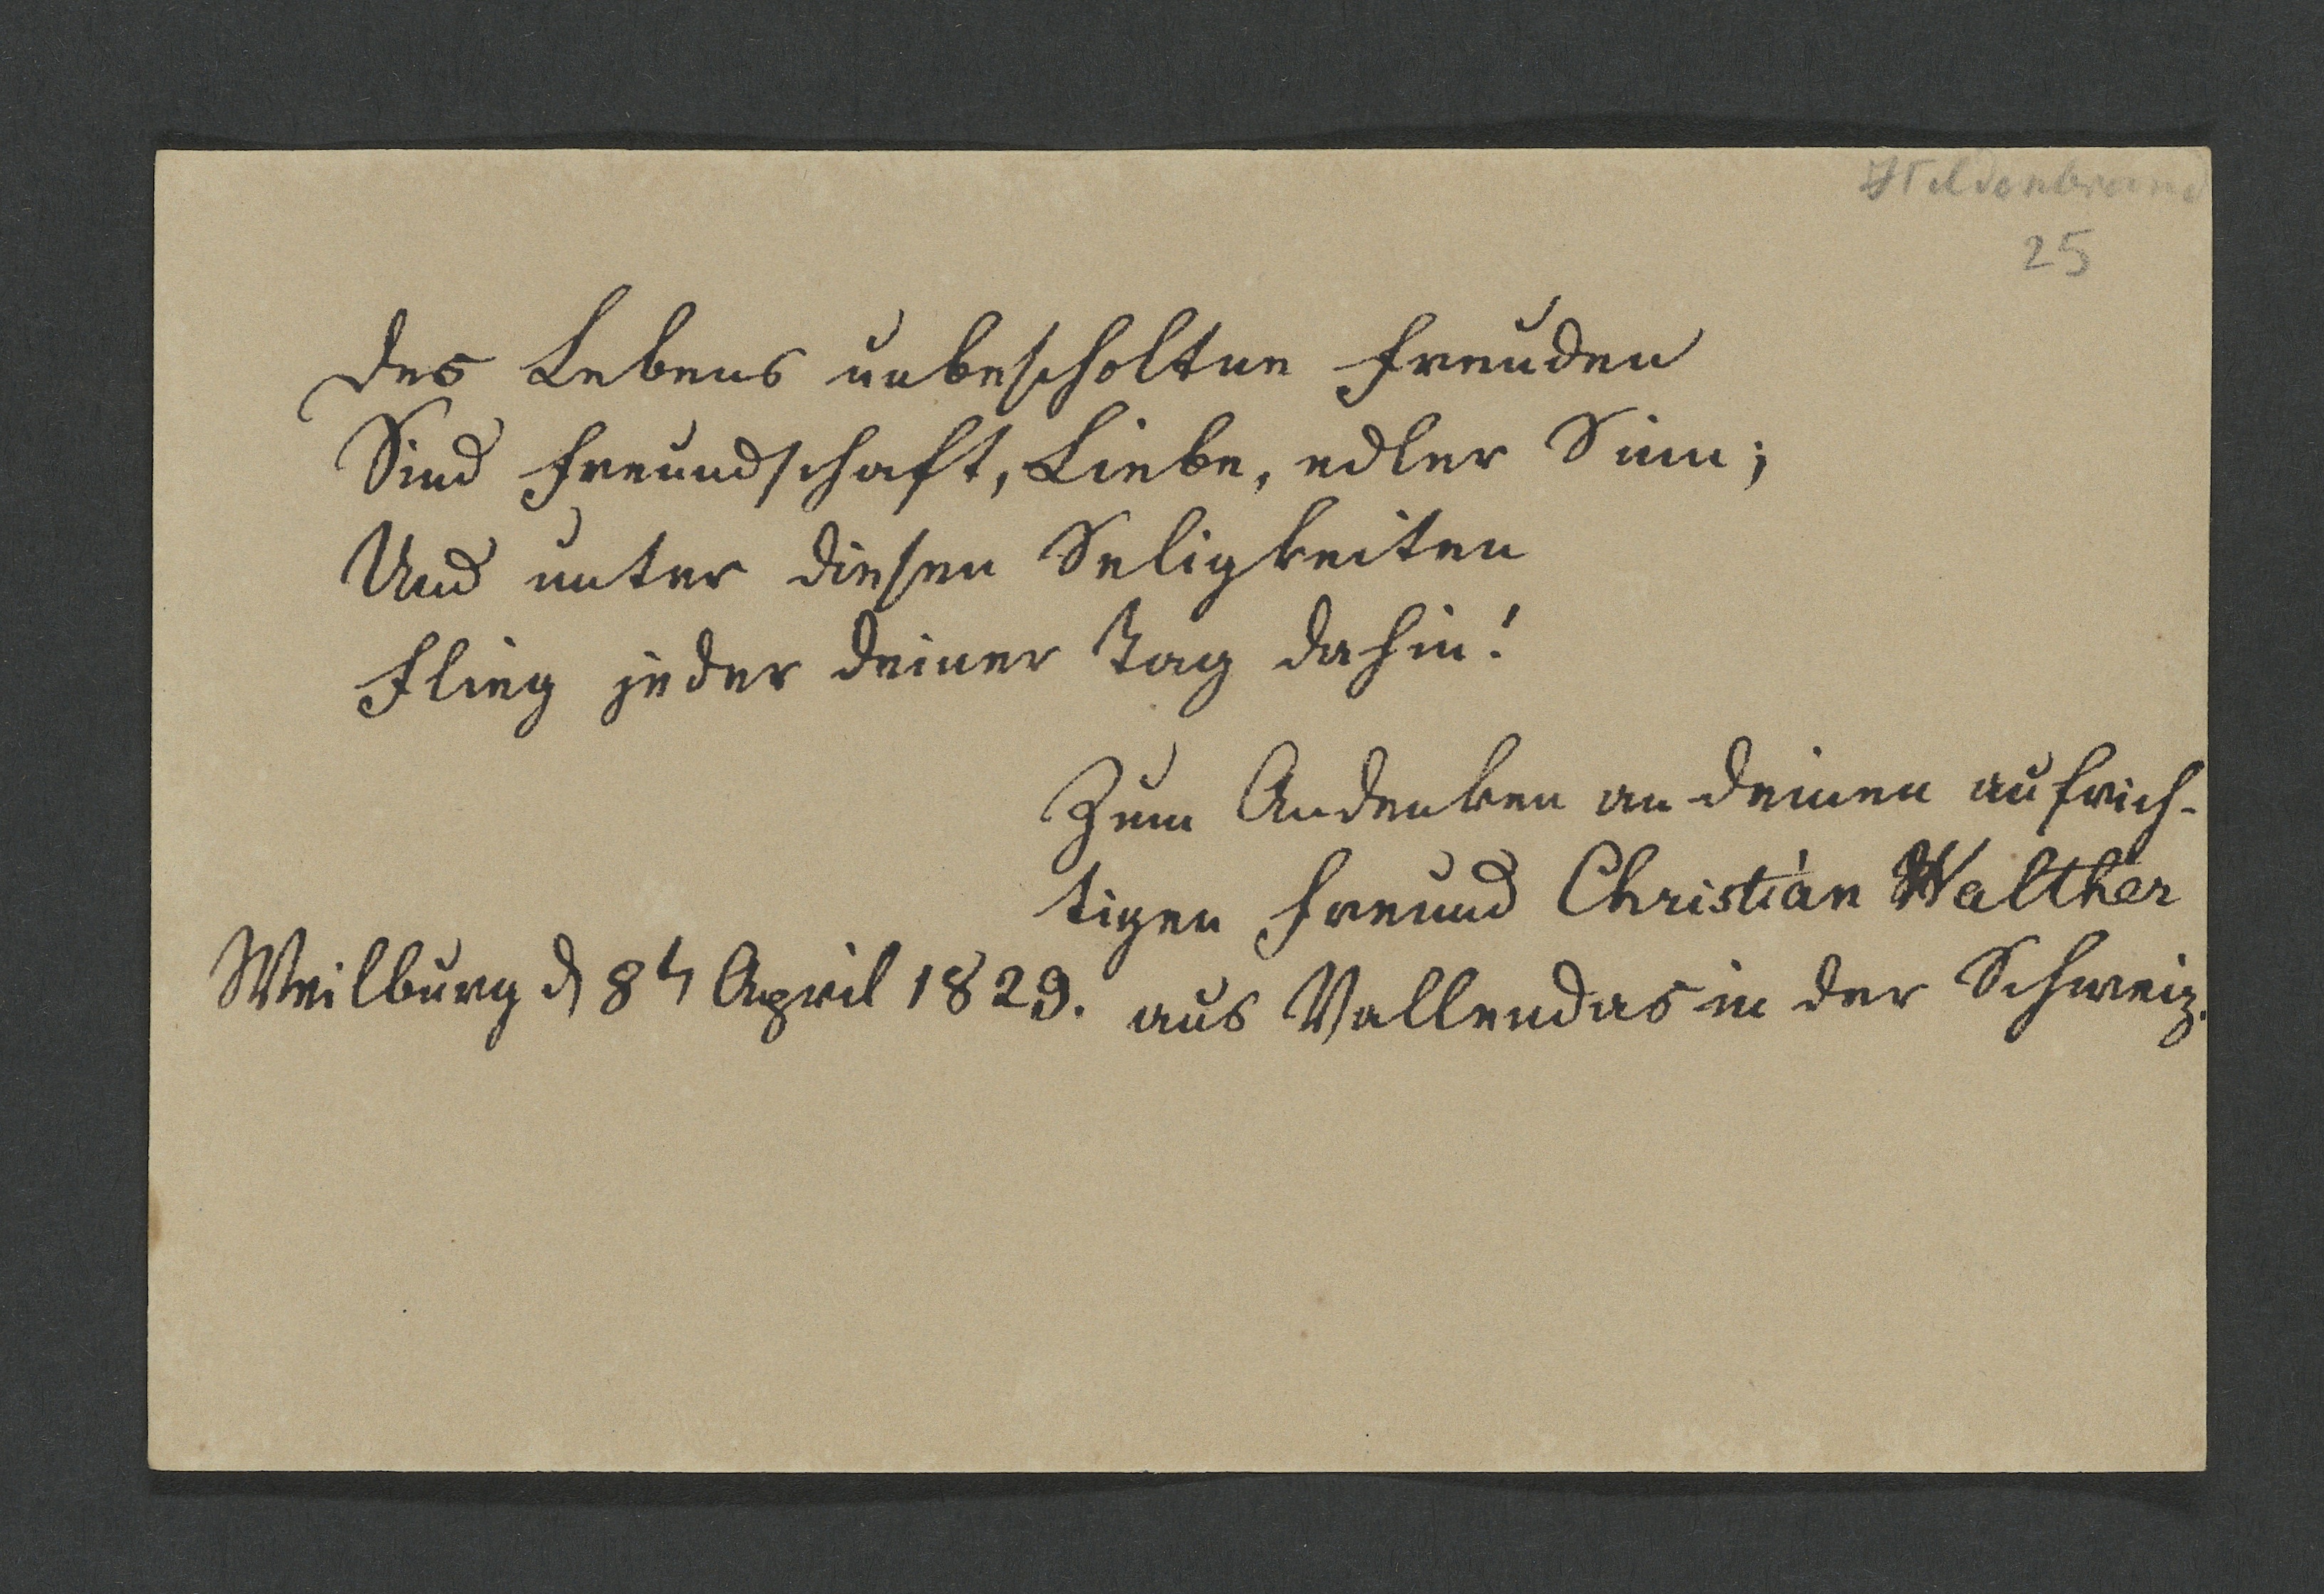 Hildenbrand
25
Des Lebens unbescholtne Freuden
Sind Freundschaft, Liebe, edler Sinn;
Und unter diesen Seligkeiten
Flieg jeder deiner Tag dahin!
Zum Andenken an deinen aufrich-
tigen Freund Christian Walther
Weilburg d 8t April 1829. aus Vallendas in der Schweiz.